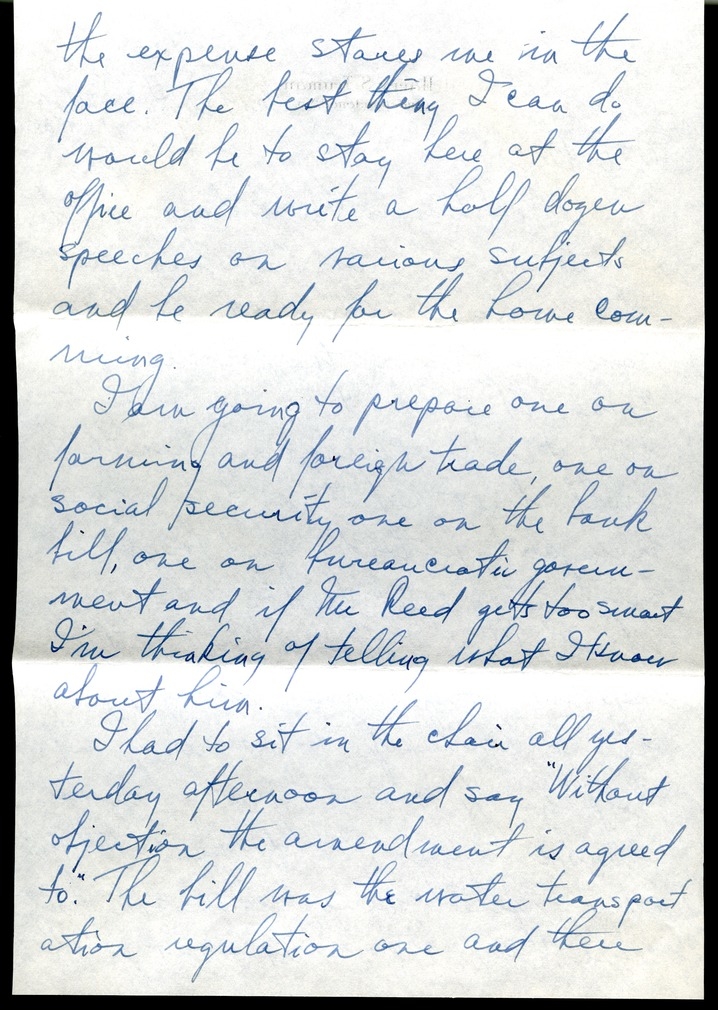 the expense stares me in the
face. The best thing I can do
would be to stay here at the
office and write a half dozen
speeches on various subjects
and be ready for the home com-
ming.
I am going to prepare one on
farming and foreign trade, one on
social security, one on the bank
bill, one on bureaucratic govern-
ment and if Mr Reed gets too smart
I'm thinking of telling what I know
about him.
I had to sit in the chair all yes-
terday afternoon and say "Without
objection the amendment is agreed
to." The bill was the water transport
ation regulation one and there